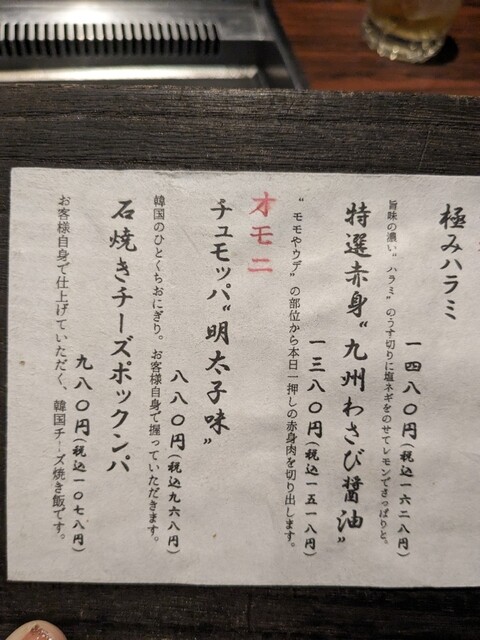 極みハラミ
一四八〇円(税込一六二八円)
旨味の濃い“ハラミ”のうす切りに塩ネギをのせてレモンでさっぱりと。
特選赤身“九州わさび醤油”
一三八〇円(税込一五一八円)
“モモやウデ”の部位から本日一押しの赤身肉を切り出します。
オモニ
チュモッパ“明太子味”
八八〇円(税込九六八円)
韓国のひとくちおにぎり。お客様自身で握っていただきます。
石焼きチーズポックンパ
九八〇円(税込一〇七八円)
お客様自身で仕上げていただく、韓国チーズ焼き飯です。